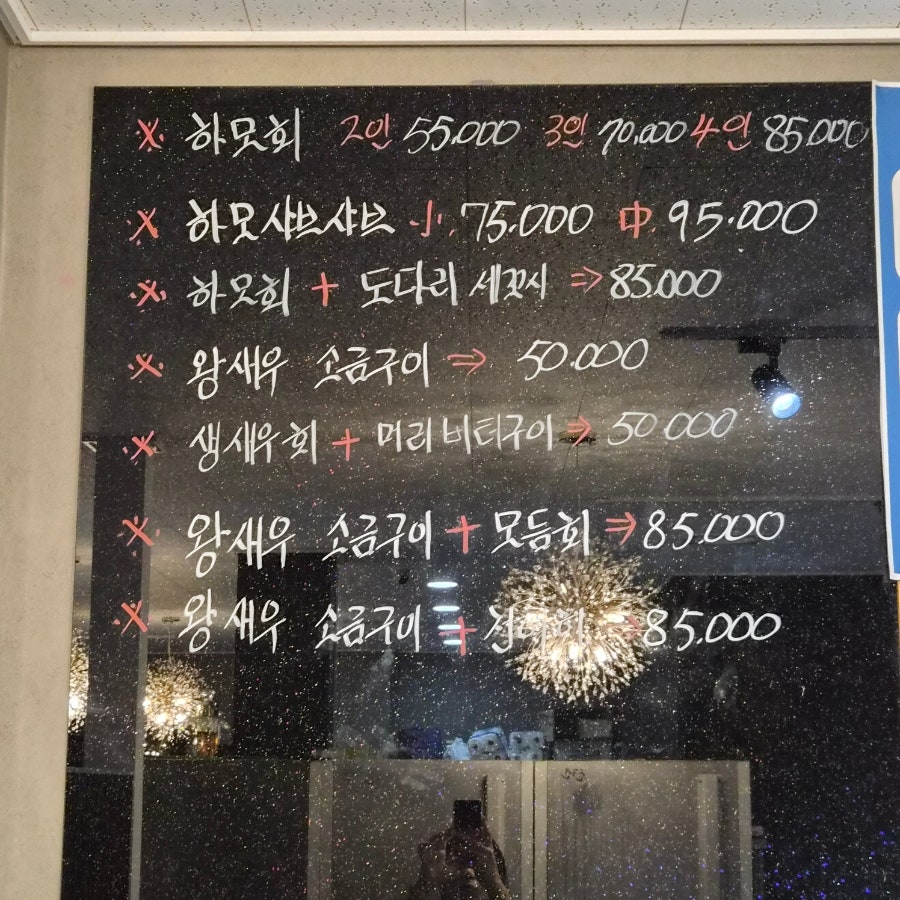 ※ 하모회 2인 55.000 3인 70.000 4인 85.000
※ 하모샤브샤브 小. 75.000 中. 95.000
※ 하모회 + 도다리 세꼬시 ⇒ 85.000
※ 왕새우 소금구이 ⇒ 50.000
※ 생새우회 + 머리버터구이 ⇒ 50.000
※ 왕새우 소금구이 + 모듬회 ⇒ 85.000
※ 왕새우 소금구이 + ⇒ 85.000